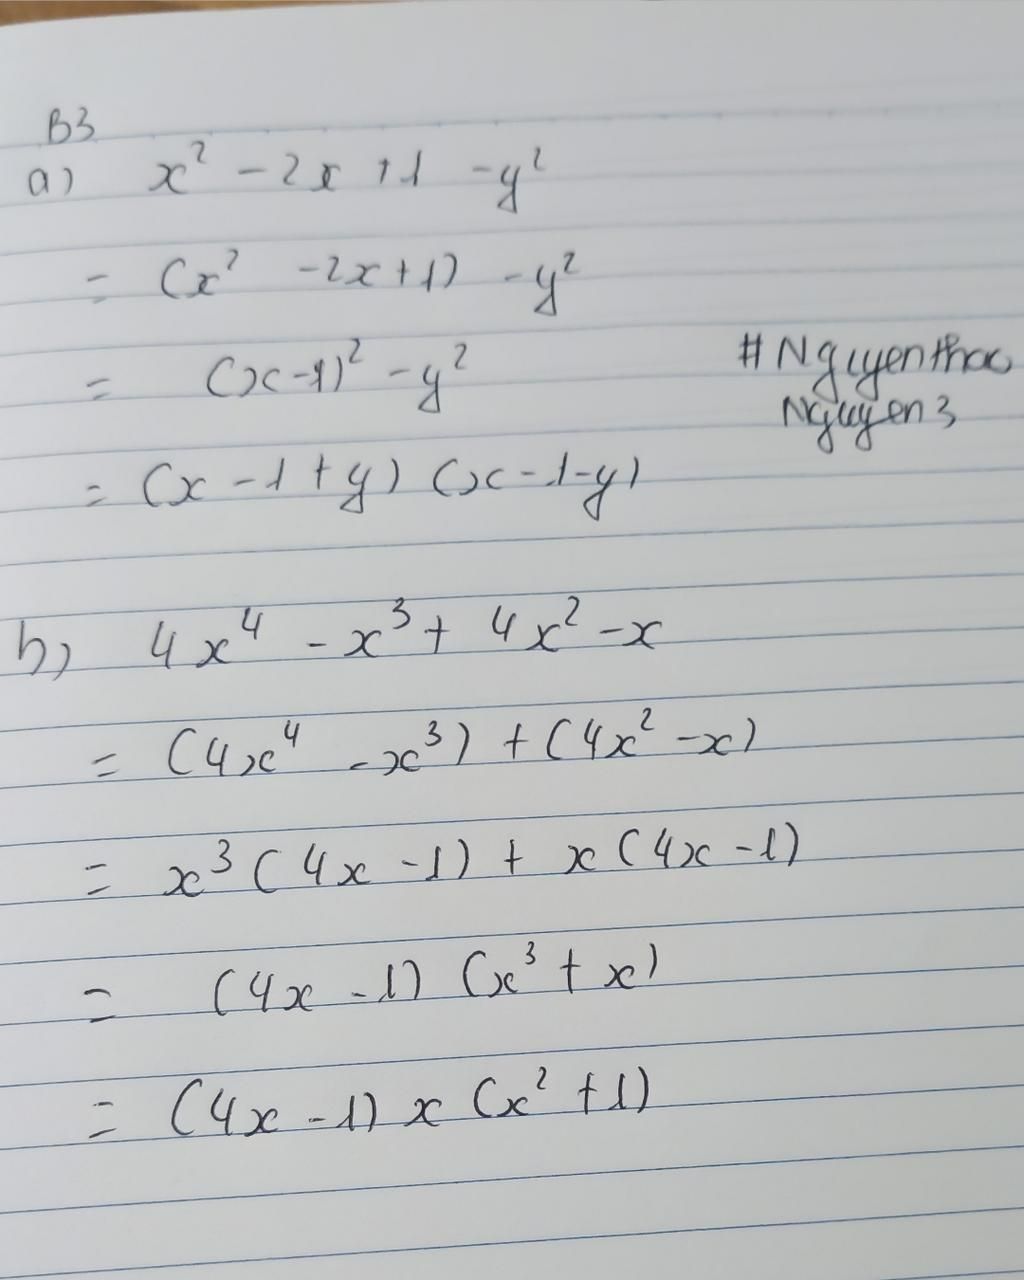 B3
a) x² - 2x + 1 - y²
= (x² - 2x + 1) - y²
= (x - 1)² - y²
#Nguyenthao
Nguyen3
= (x - 1 + y) (x - 1 - y)
b) 4x⁴ - x³ + 4x² - x
= (4x⁴ - x³) + (4x² - x)
= x³ (4x - 1) + x (4x - 1)
= (4x - 1) (x³ + x)
= (4x - 1) x (x² + 1)